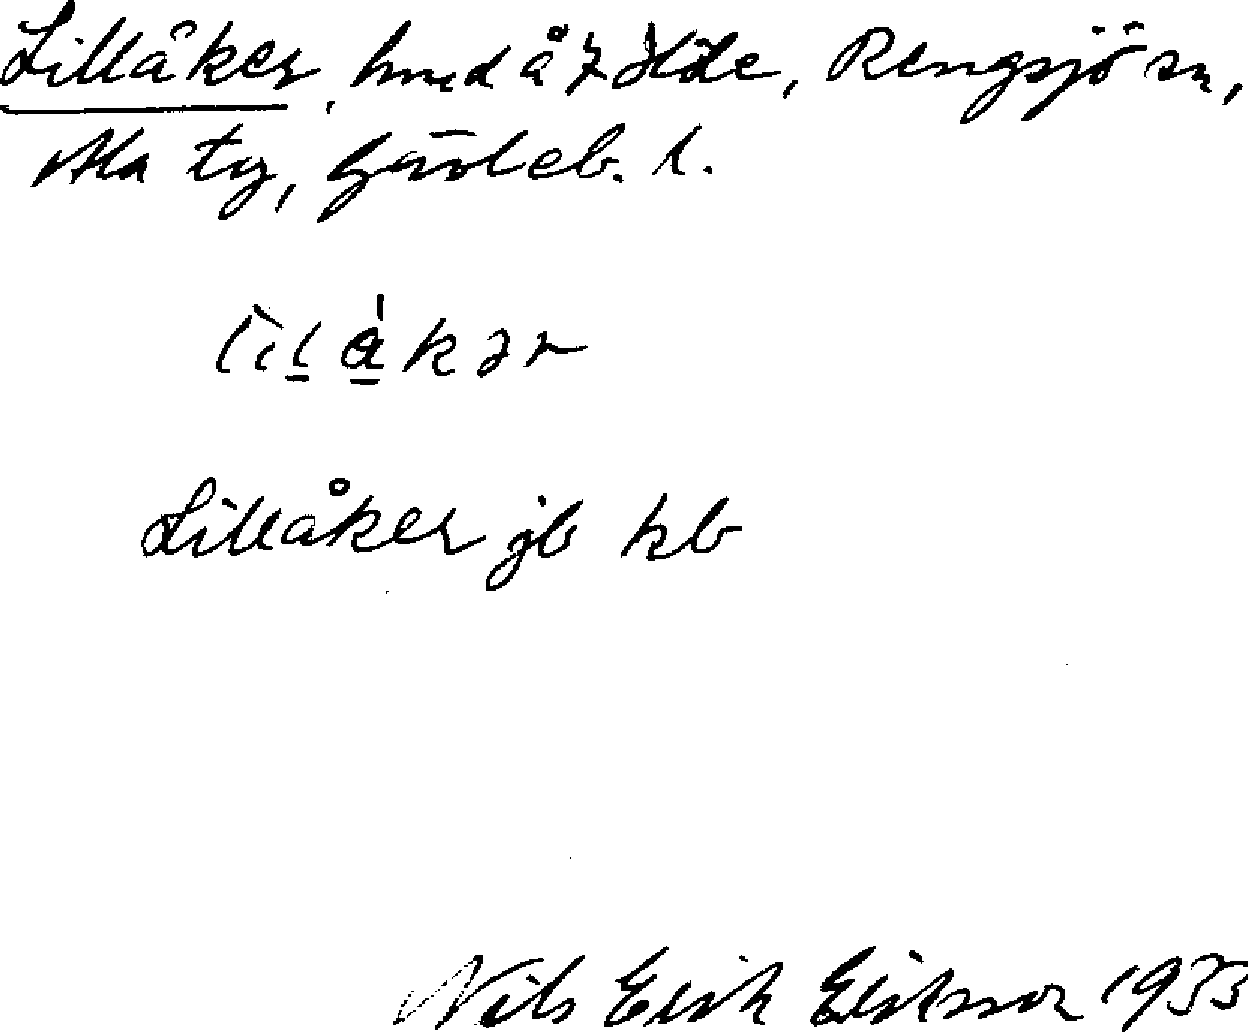 Lillåker, hmd å 7 Höle, Rengsjö sn,
Ala tg, Gävleb. l.
lilåkər
Lillåker jb kb
Nils Erik Eriksson 1933